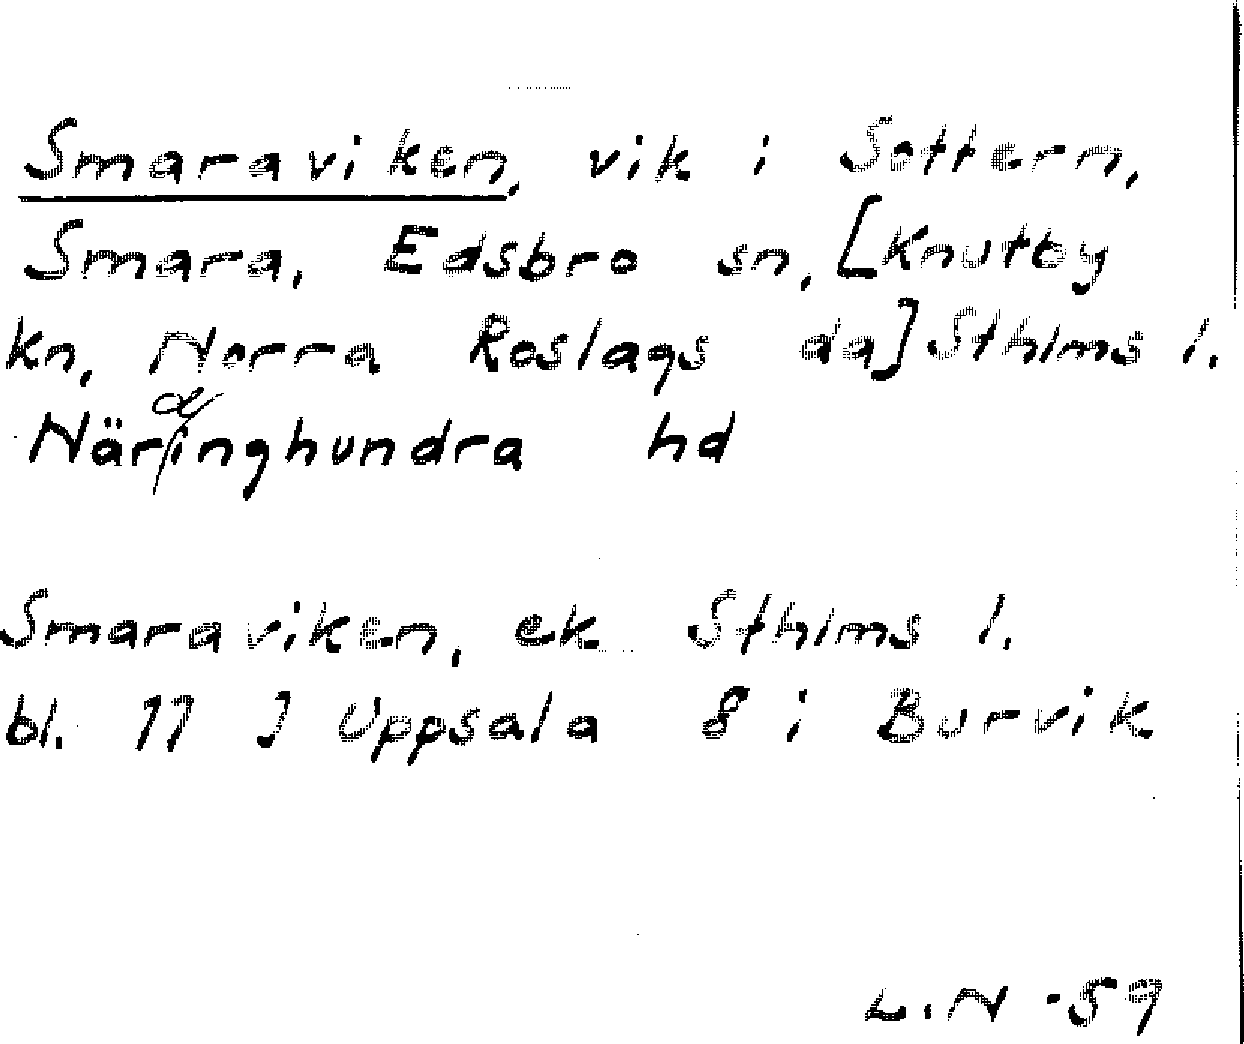 Smaraviken, vik i Sottern,
Smara, Edsbro sn, [Knutby
kn, Norra Roslags da] Sthlms l.
Närdinghundra hd
Smaraviken, ek Sthlms l.
bl. 11 J Uppsala 8 i Burvik
L.N -59